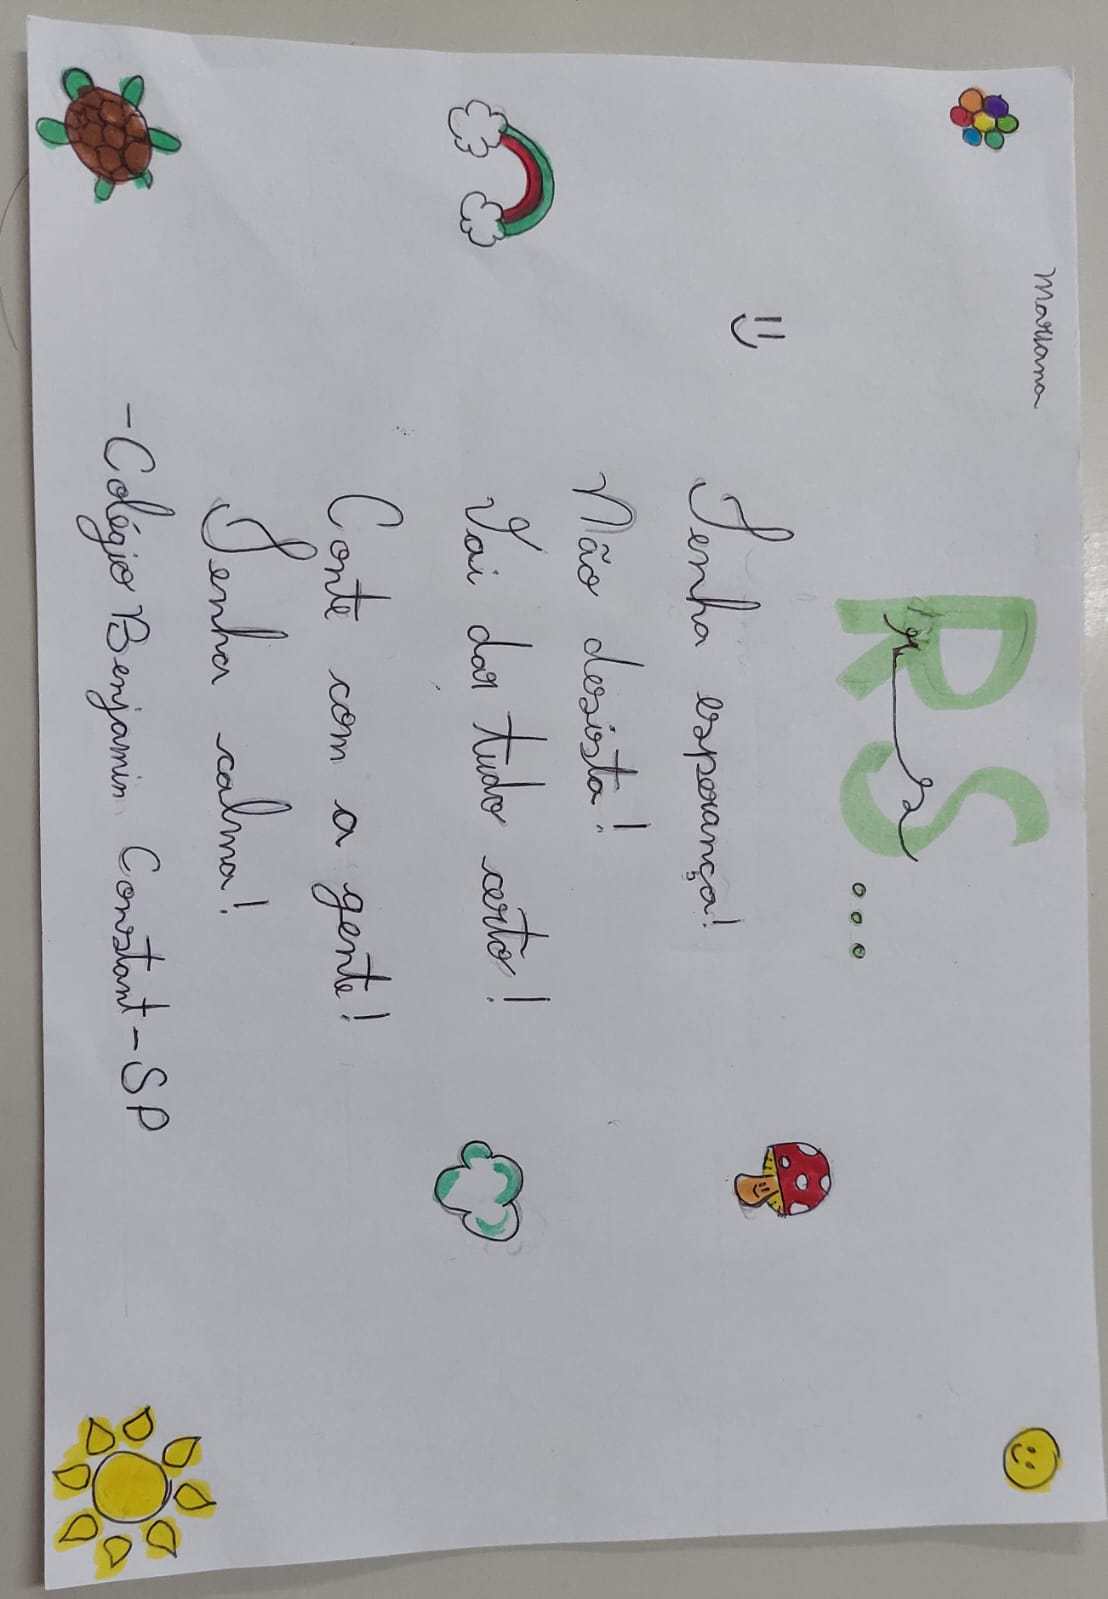 Mariana
RS...
Tenha esperança!
Não desista!
Vai dar tudo certo!
Conte com a gente!
Tenha calma!
-Colégio Benjamin Constant-SP